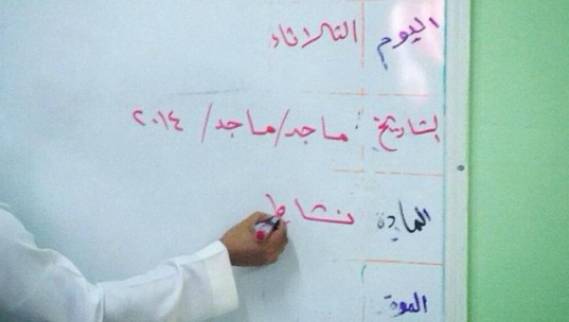 اليوم الثلاثاء
التاريخ : ماجد/ماجد/ ٢٠١٤
المادة نشاط